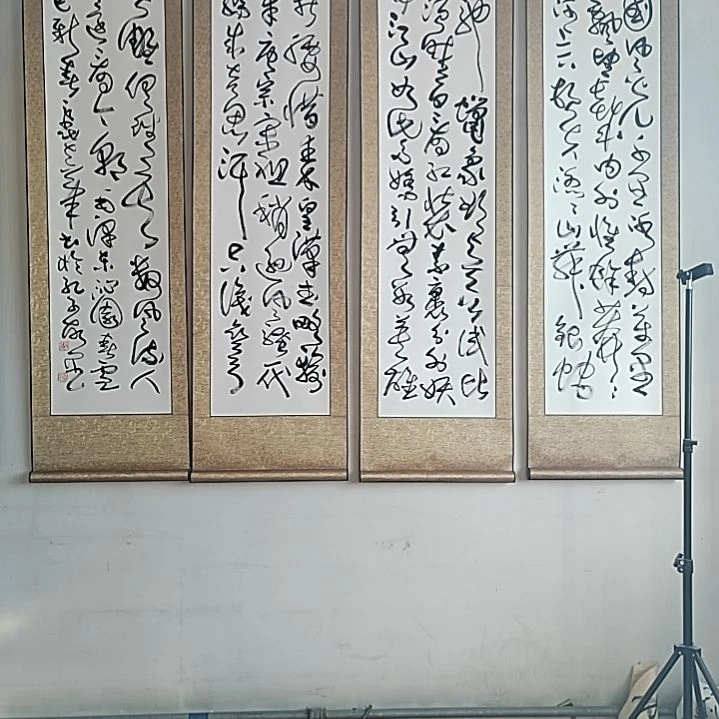 國風光千里冰封萬里雪
飄望長城內外惟餘莽莽
河上下頓失滔滔山舞銀蛇
馳蠟象欲與天公試比
須晴日看紅裝素裹分外妖
江山如此多嬌引無數英雄
折腰惜秦皇漢武略輸
采唐宗宋祖稍遜風騷一代
驕成吉思汗只識彎弓
雕俱往矣數風流人
還看今朝毛澤東沁園春雪
書於孔子故里